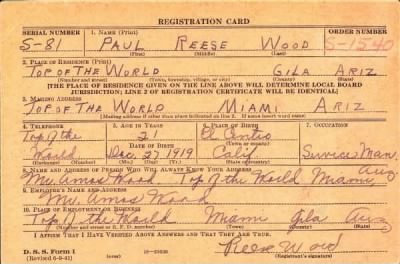 REGISTRATION CARD
SERIAL NUMBER 1. NAME (Print) ORDER NUMBER
S-81 PAUL REESE WOOD S-1540
(First) (Middle) (Last)
2. PLACE OF RESIDENCE (Print)
TOP OF THE WORLD GILA ARIZ
(Number and street) (Town, township, village, or city) (County) (State)
[THE PLACE OF RESIDENCE GIVEN ON THE LINE ABOVE WILL DETERMINE LOCAL BOARD
JURISDICTION; LINE 2 OF REGISTRATION CERTIFICATE WILL BE IDENTICAL]
3. MAILING ADDRESS
TOP OF THE WORLD MIAMI ARIZ
[Mailing address if other than place indicated on line 2. If same insert word same]
4. TELEPHONE 5. AGE IN YEARS 6. PLACE OF BIRTH 7. OCCUPATION
Top of the 21 El Centro
DATE OF BIRTH (Town or county)
World Dec. 23 1919 Calif Service Man
(Exchange) (Number) (Mo.) (Day) (Yr.) (State or country)
8. NAME AND ADDRESS OF PERSON WHO WILL ALWAYS KNOW YOUR ADDRESS
Mr. Amos Wood Top of the World Miami Ariz
9. EMPLOYER'S NAME AND ADDRESS
Mr. Amos Wood
10. PLACE OF EMPLOYMENT OR BUSINESS
Top of the World Miami Gila Ariz
(Number and street or R. F. D. number) (Town) (County) (State)
I AFFIRM THAT I HAVE VERIFIED ABOVE ANSWERS AND THAT THEY ARE TRUE.
D. S. S. Form 1
(Revised 6-9-41) Reese Wood